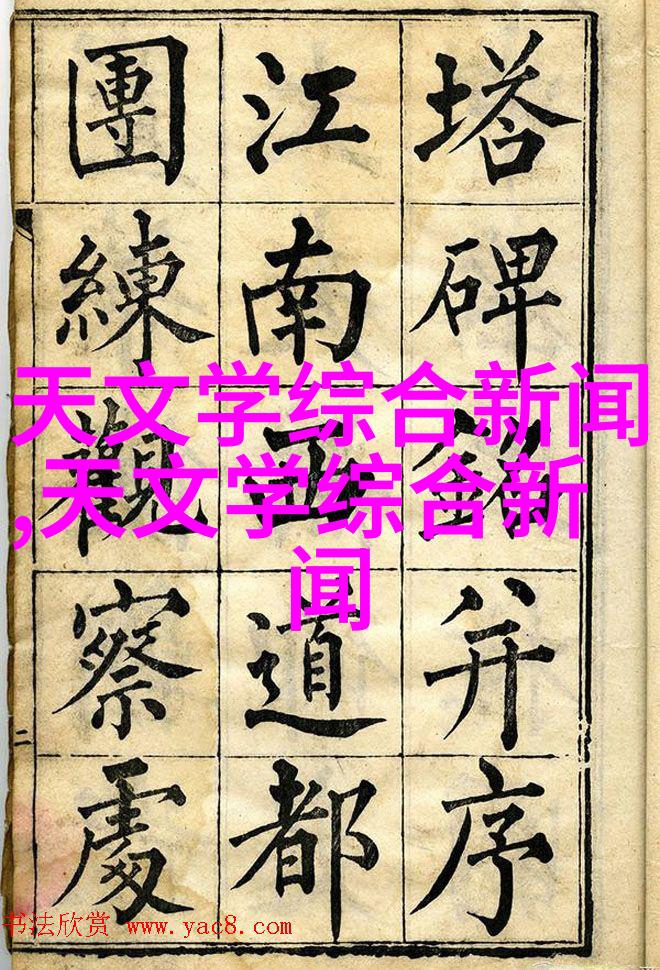 塔碑銘并序
江南西道都
團練觀察處
二
天文学综合新闻
,天文学综合新
闻
书法欣赏 www.yac8.com